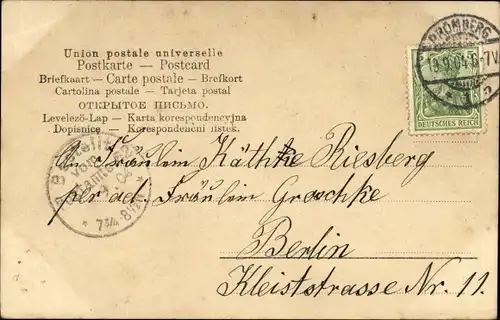 Union postale universelle
Postkarte — Postcard
Briefkaart — Carte postale — Brefkort
Cartolina postale — Tarjeta postal
ОТКРЫТОЕ ПИСЬМО.
Levelező-Lap — Karta korespondencyjna
Dopisnice — Korespondenční lístek.
BROMBERG
DEUTSCHES REICH
Bestellt
vom
Postamte
7¾-8½V
An Fräulein Käthke Riesberg
per ad. Fräulein Groschke
Berlin
Kleiststrasse Nr. 11.